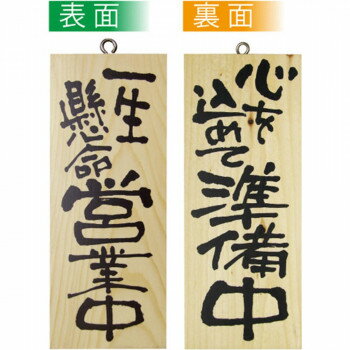 表面
一生
懸命
営業中
裏面
心を
込めて
準備中